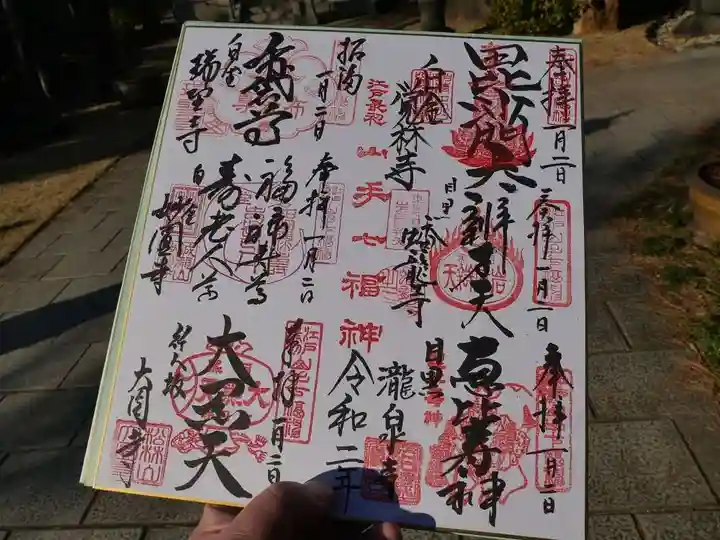 奉拝 一月二日
毘沙門天
白金
覚林寺
奉拝 一月二日
辨才天
目黒
蟠龍寺
奉拝 一月二日
恵比寿神
目黒
瀧泉寺
江戸最初
山手七福神
令和二年
拓満
一月二日
布袋尊
白金
瑞聖寺
奉拝 一月二日
福禄寿尊
寿老人尊
白金
妙圓寺
奉拝 一月二日
大黒天
行人坂
大圓寺